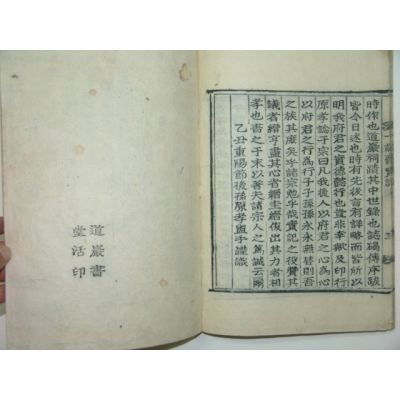 時作也道巖祠蹟其中世錄也誌碣傳序跋
皆今日述也時有先後言有詳略而皆所以
明我府君之實德懿行也豈非幸歟及印行
原孝諗于宗曰凡我後人以府君之心爲心
以府君之行爲行子子孫孫永永無替則吾
之族其庶矣乎諸宗勉乎哉實記之役贊其
議者縉亨盡其心者縉圭縉復出其力者相
孝也書之于末以著夫諸宗人之爲誠云爾
乙丑重陽節後孫原孝盥手謹識
道巖書
堂活印